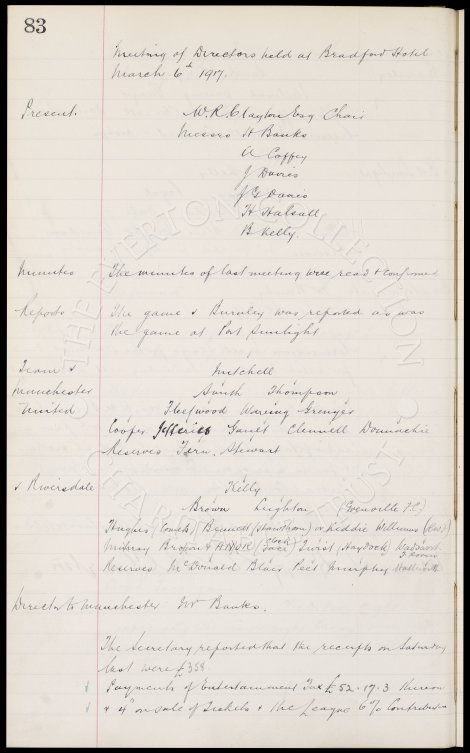 83
Meeting of Directors held at Bradford Hotel
March 6th 1917.
Present. W. R. Clayton Esq Chair
Messrs H Banks
A Coffey
J Davies
J G Davies
H Halsall
B Kelly.
Minutes The minutes of last meeting were read & confirmed
Reports The game v Burnley was reported as was
the game at Port Sunlight
Team v Mitchell
Manchester Smith Thompson
United Fleetwood Wareing Grenyer
Cooper Jefferies Gault Clennell Donnachie
Reserves Fern. Stewart
v Riversdale Kelly
Brown Leighton
Hughes Bennett or Weddie Williams
Murray Brown
Reserves McDonald Blair Peet Murphy
Director to Manchester Mr Banks.
The Secretary reported that the receipts on Saturday
last were £358
Payments of Entertainment Tax £52.17.3 thereon
& on sale of Tickets & the League 6% Contribution
THE EVERTON COLLECTION
CHARITABLE TRUST